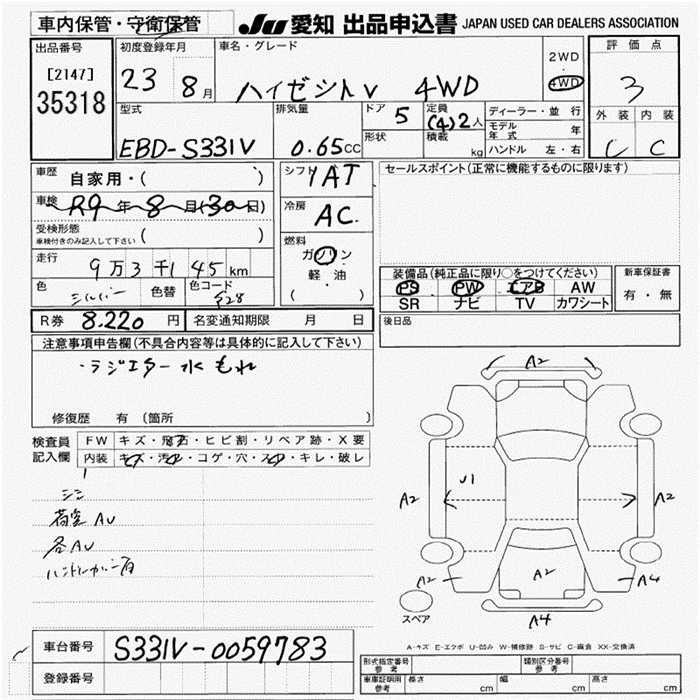 車内保管・守衛保管
JU 愛知 出品申込書 JAPAN USED CAR DEALERS ASSOCIATION
出品番号
[2147]
35318
初度登録年月
23 8月
車名・グレード
ハイゼットV 4WD
2WD
・
4WD
評価点
3
外装 内装
C C
型式
EBD-S331V
排気量
0.65CC
ドア 5
形状
定員 (4)2人
積載 kg
ディーラー・並行
モデル年式 年
ハンドル 左・右
車歴 自家用・( )
車検 R9年8月(30日)
受検形態
車検付きのみ記入して下さい ( )
走行 9万3千145km
色 シルバー 色替 色コード S28
シフト 1AT
冷房 AC
燃料
ガソリン
軽・油
( )
セールスポイント(正常に機能するものに限ります)
装備品(純正品に限り○をつけてください)
PS PW エアB AW
SR ナビ TV カワシート
新車保証書
有・無
R券 8.220円 名変通知期限 月 日
後日品
注意事項申告欄(不具合内容等は具体的に記入して下さい)
・ラジエター水もれ
修復歴 有(箇所 )
検査員記入欄
FW キズ・飛石・ヒビ割・リペア跡・X要
内装 キズ・汚れ・コゲ・穴・スレ・キレ・破レ
荷室AU
各AU
A2
A2
J1
A2
A2
A2
A4
A4
スペア
A-キズ E-エクボ U-凹み W-補修跡 S-サビ C-腐食 XX-交換済
車台番号 S331V-0059783
登録番号
形式指定番号 参考
類別区分番号 参考
車庫証明用 参考 長さ cm 幅 cm 高さ cm